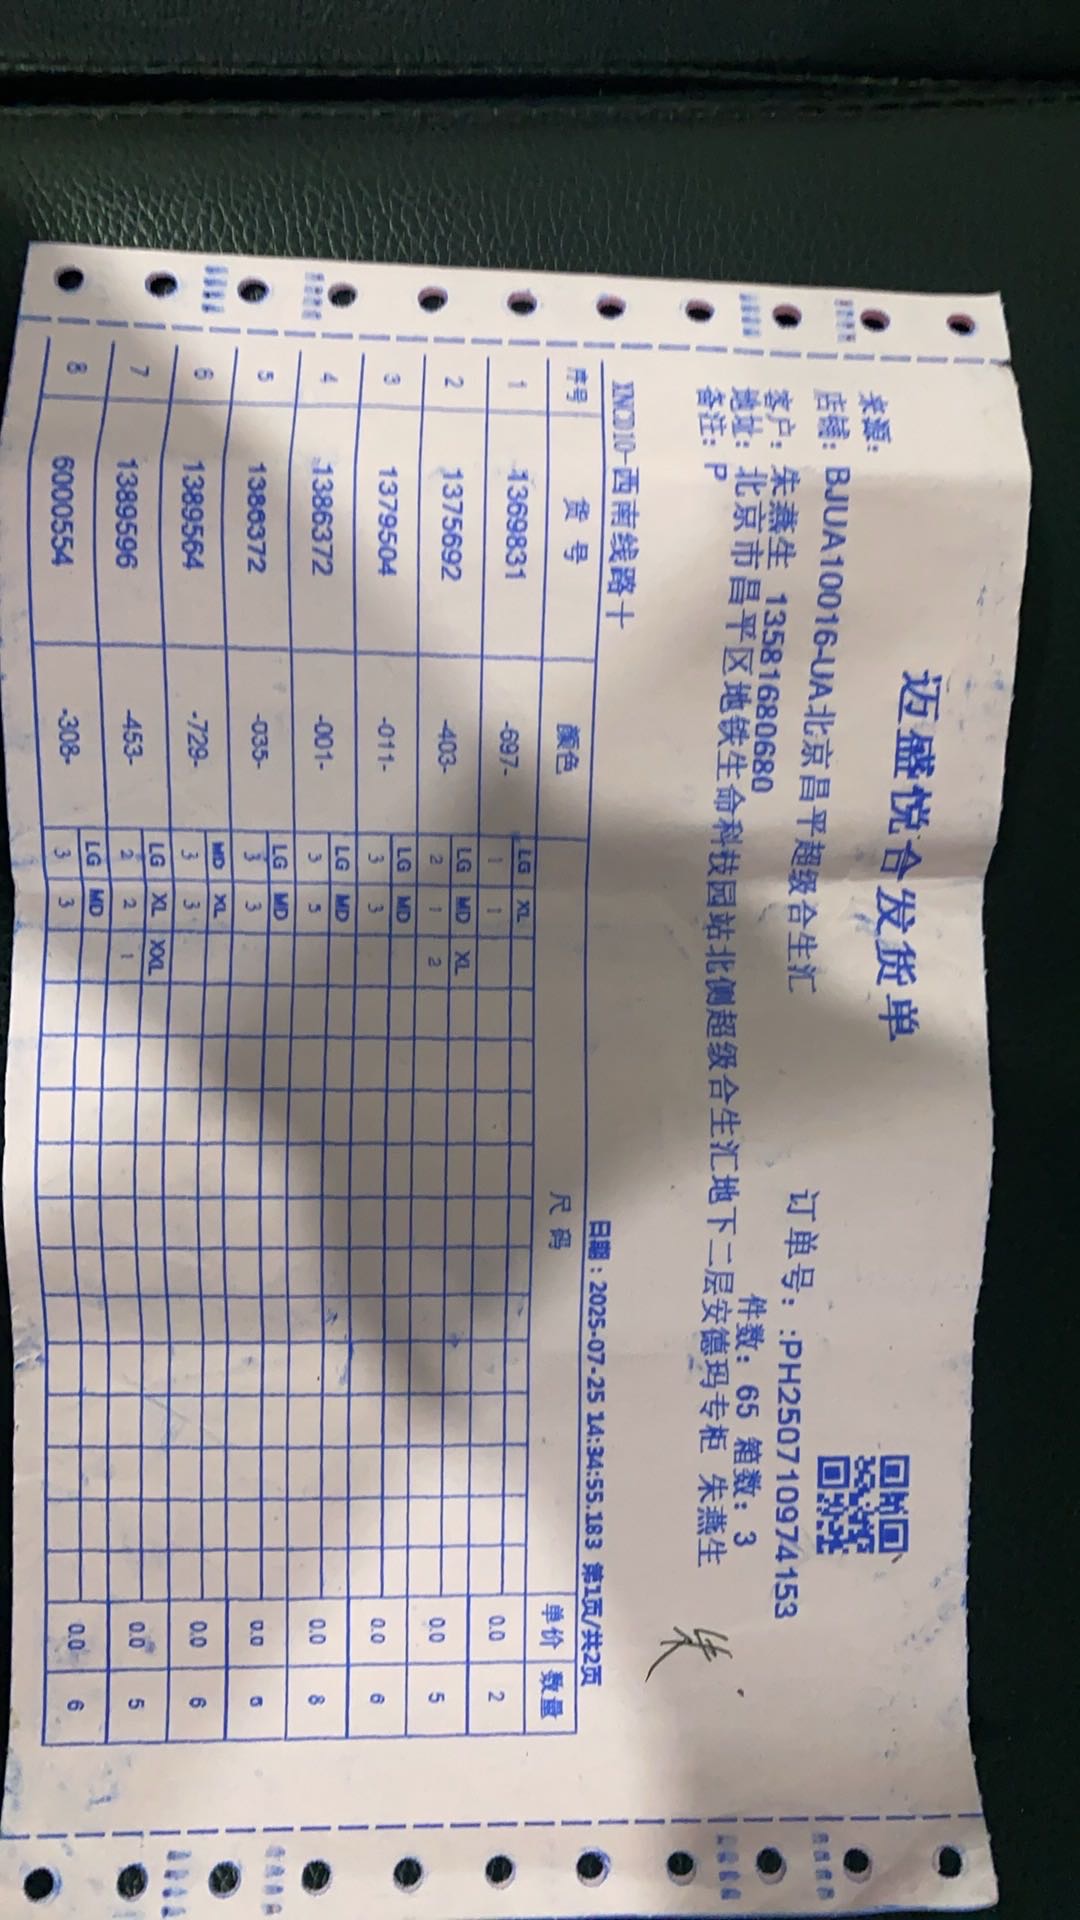 迈盛悦合发货单
来源:
店铺: BJUA10016-UA北京昌平超级合生汇
订单号: :PH250710974153
客户: 朱燕生 13581680680
件数: 65 箱数: 3
地址: 北京市昌平区地铁生命科技园站北侧超级合生汇地下二层安德玛专柜 朱燕生
备注: P
朱
XNCD10-西南线路十
日期: 2025-07-25 14:34:55.183 第1页/共2页
序号 货号 颜色 尺码 单价 数量
LG XL
1 1369831 -697- 1 1 0.0 2
LG MD XL
2 1375692 -403- 2 1 2 0.0 5
LG MD
3 1379504 -011- 3 3 0.0 6
LG MD
4 1386372 -001- 3 5 0.0 8
LG MD
5 1386372 -035- 3 3 0.0 6
MD XL
6 1389564 -729- 3 3 0.0 6
LG XL XXL
7 1389596 -453- 2 2 1 0.0 5
LG MD
8 6000554 -308- 3 3 0.0 6